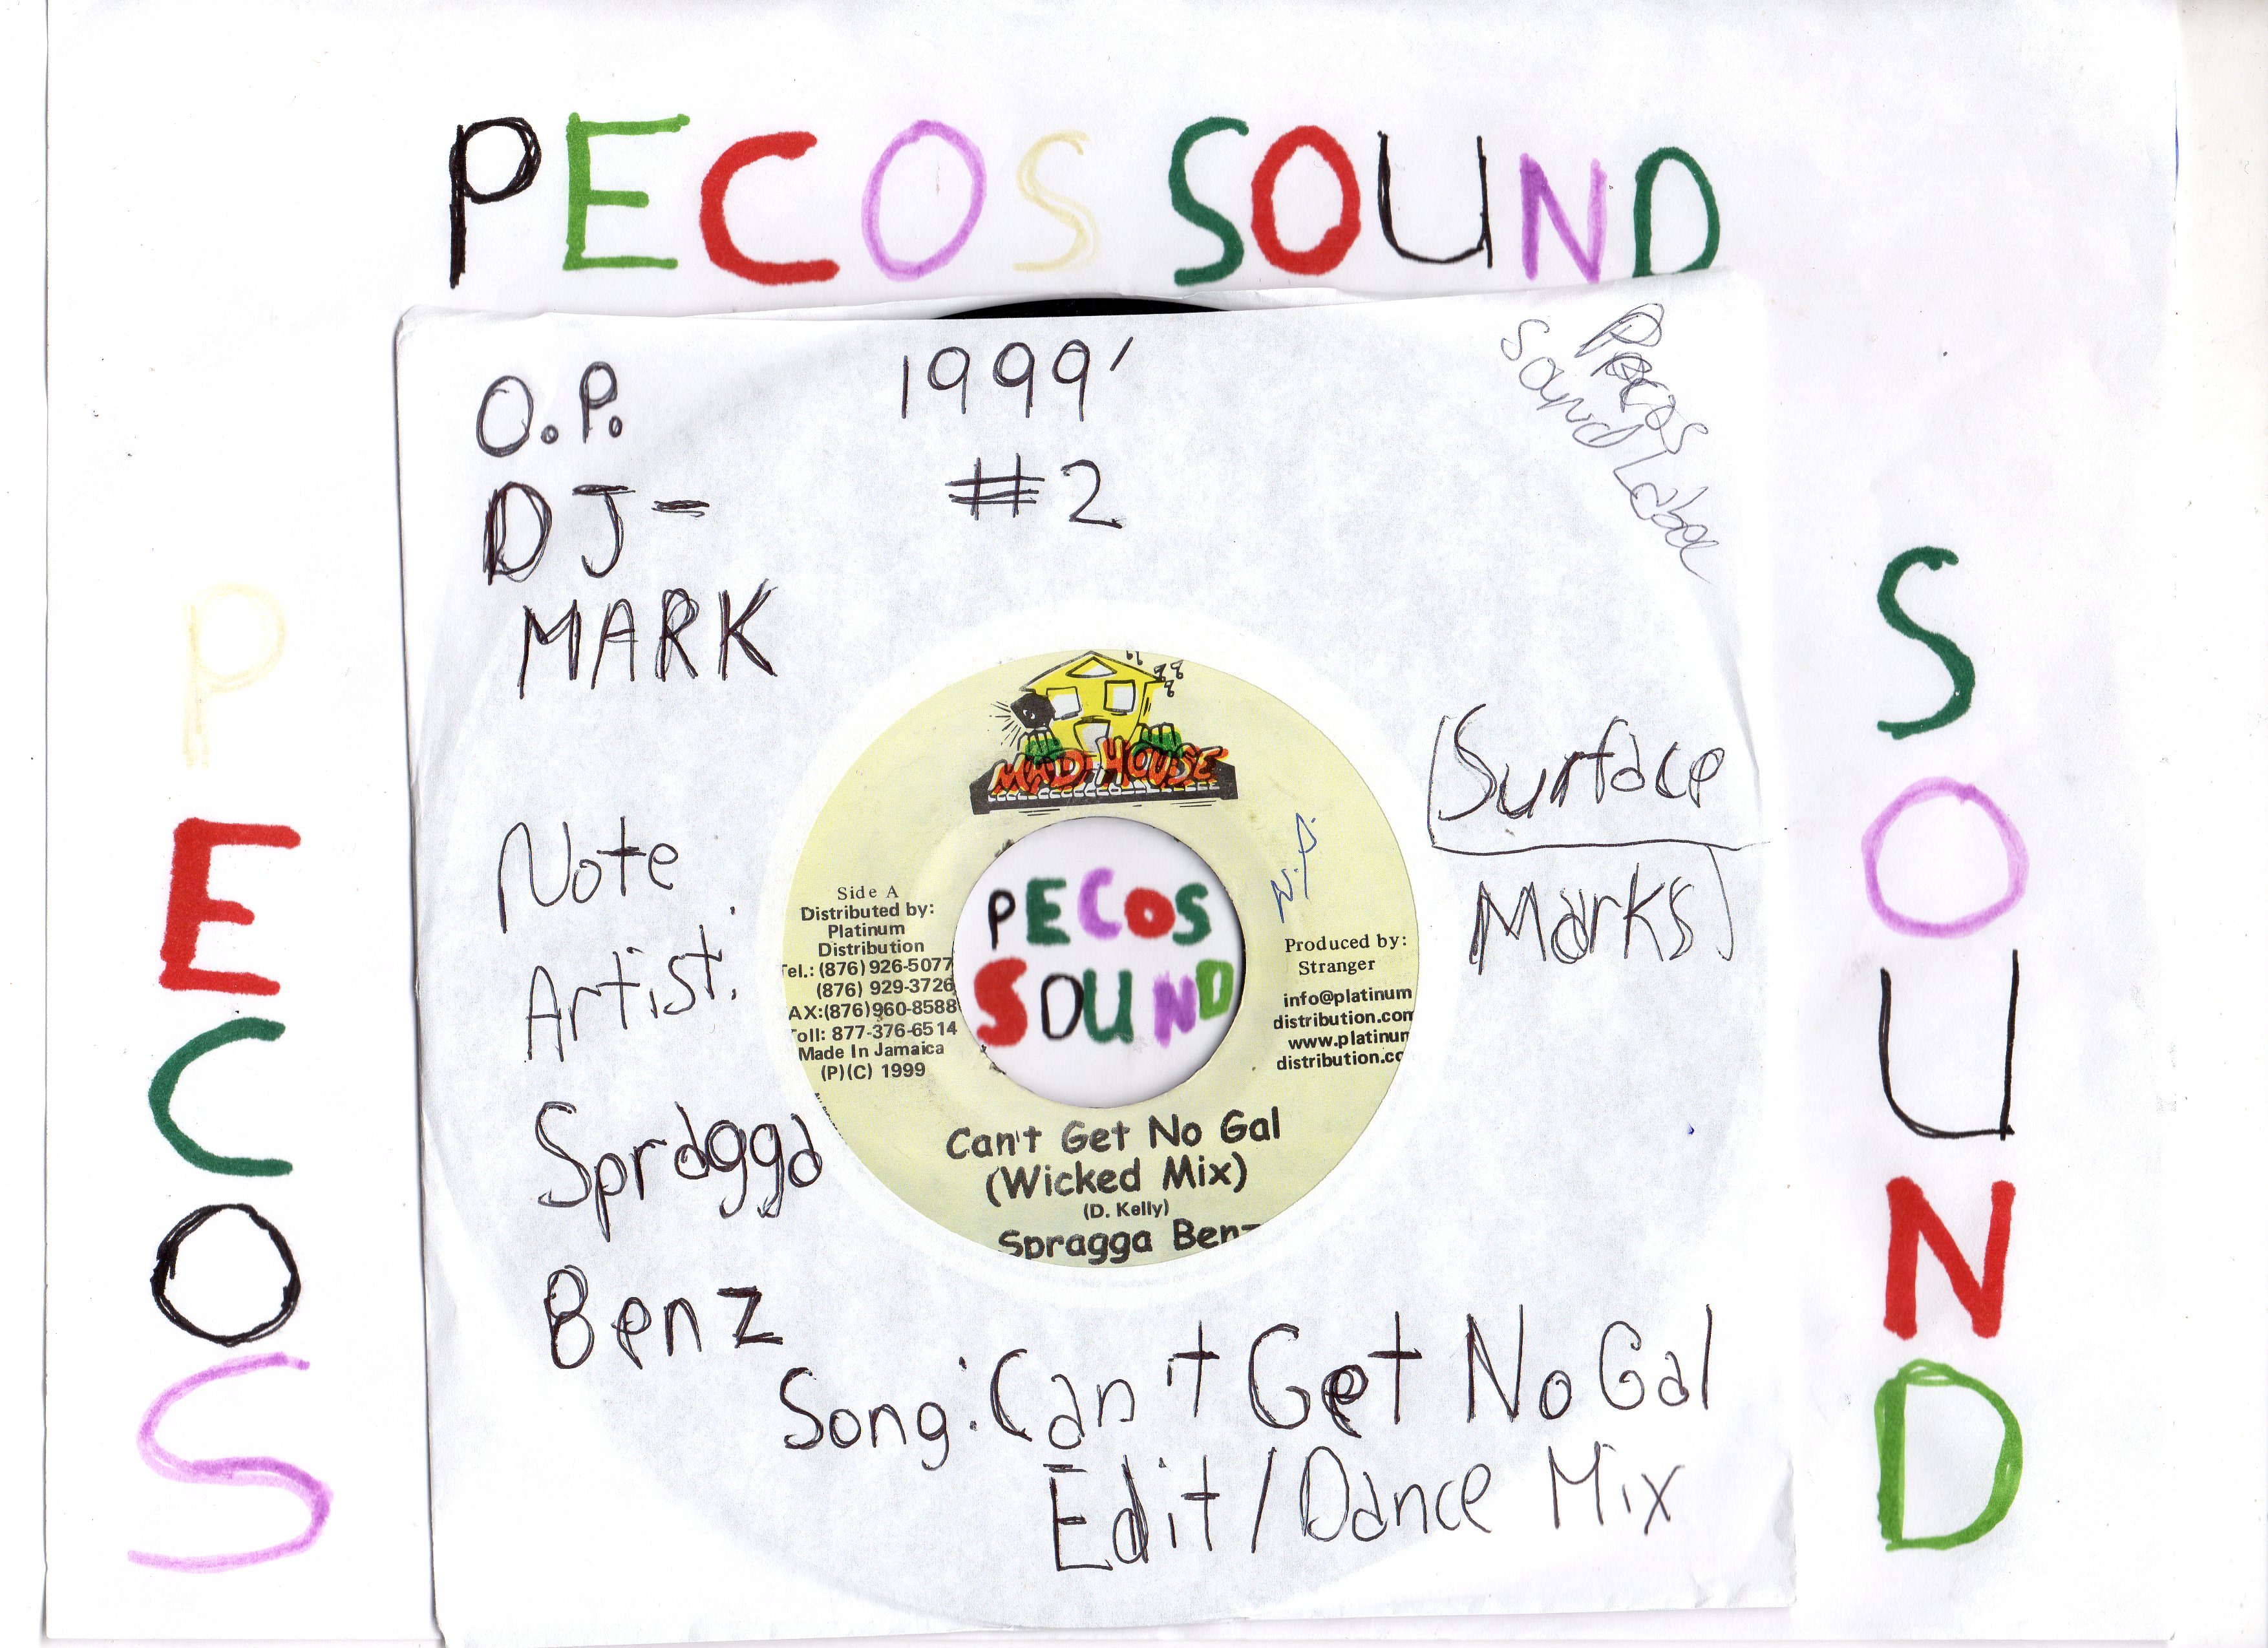 PECOS SOUND
O.P.
DJ-
MARK
1999'
#2
Pecos
Sound Label
PECOS
SOUND
Note
Artist:
Spragga
Benz
(Surface
Marks)
MAD HOUSE
Side A
Distributed by:
Platinum
Distribution
Tel.: (876) 926-5077
(876) 929-3726
AX:(876)960-8588
Toll: 877-376-6514
Made In Jamaica
(P)(C) 1999
PECOS
SOUND
Produced by:
Stranger
info@platinum
distribution.com
www.platinum
distribution.co
Can't Get No Gal
(Wicked Mix)
(D. Kelly)
Spragga Benz
Song: Can't Get No Gal
Edit/Dance Mix